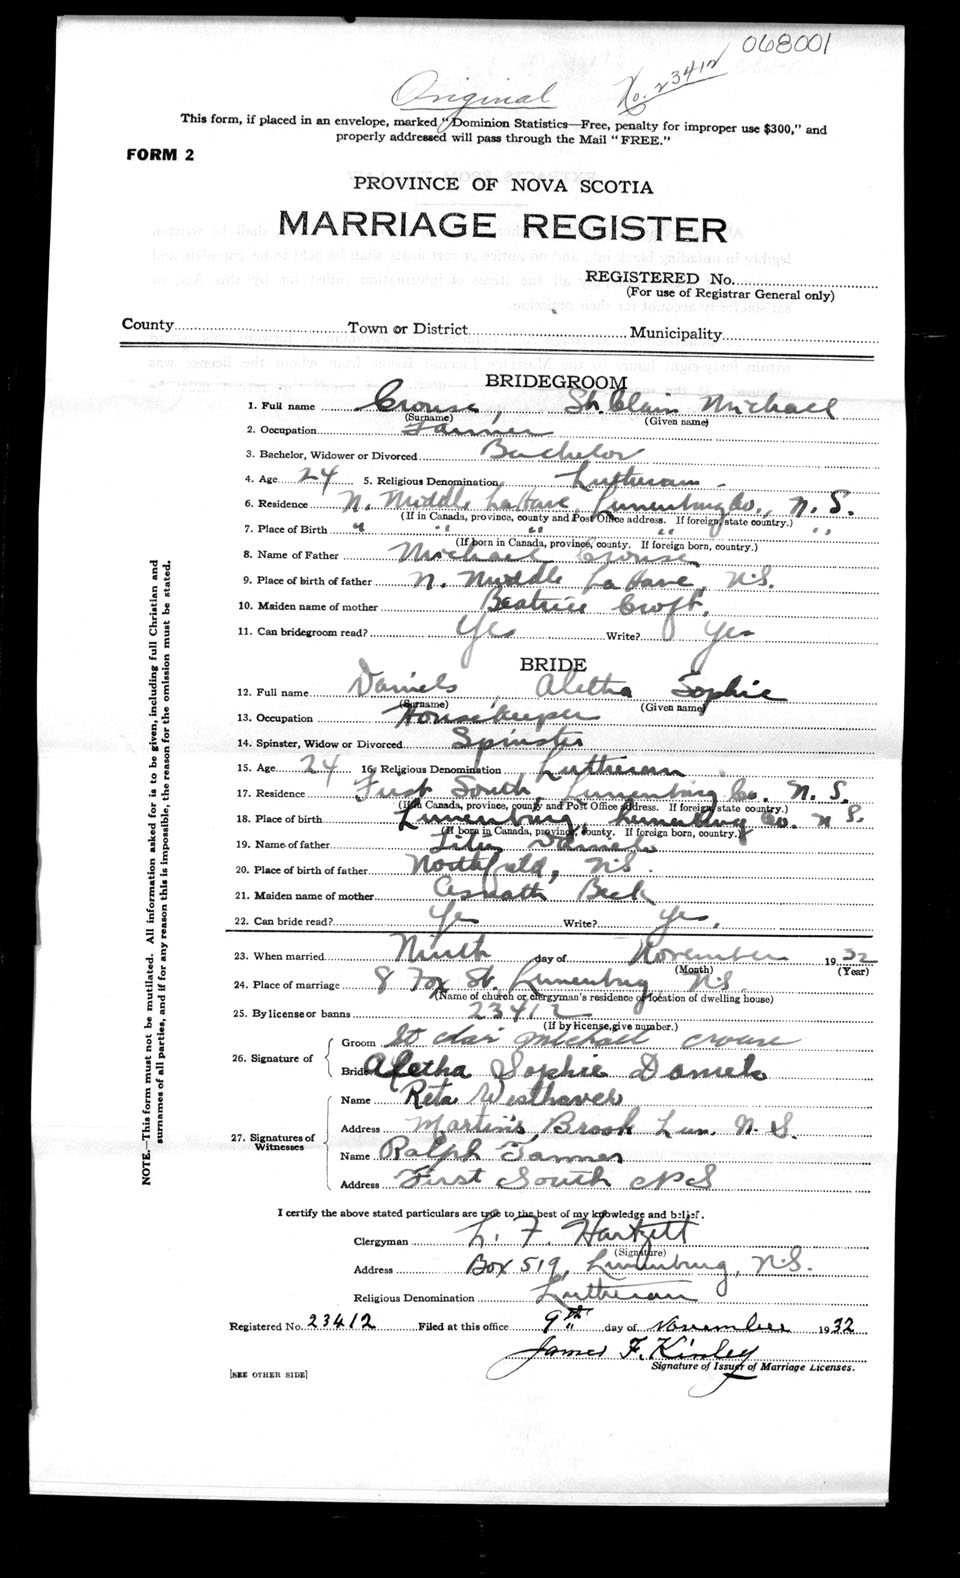 068001
Original No. 23412
This form, if placed in an envelope, marked "Dominion Statistics—Free, penalty for improper use $300," and
properly addressed will pass through the Mail "FREE."
FORM 2
PROVINCE OF NOVA SCOTIA
MARRIAGE REGISTER
REGISTERED No.
(For use of Registrar General only)
County Town or District Municipality
BRIDEGROOM
1. Full name Crouse, St. Clair Michael
(Surname) (Given name)
2. Occupation Farmer
3. Bachelor, Widower or Divorced Bachelor
4. Age 24 5. Religious Denomination Lutheran
6. Residence N. Middle LaHave, Lunenburg Co., N. S.
(If in Canada, province, county and Post Office address. If foreign, state country.)
7. Place of Birth " " " " "
(If born in Canada, province, county. If foreign born, country.)
8. Name of Father Michael Crouse
9. Place of birth of father N. Middle LaHave, N.S.
10. Maiden name of mother Beatrice Croft.
11. Can bridegroom read? Yes Write? Yes
BRIDE
12. Full name Daniels, Aletha Sophie
(Surname) (Given name)
13. Occupation Housekeeper
14. Spinster, Widow or Divorced Spinster
15. Age 24 16. Religious Denomination Lutheran
17. Residence First South, Lunenburg Co. N. S.
(If in Canada, province, county and Post Office address. If foreign, state country.)
18. Place of birth Lunenburg, Lunenburg Co. N S.
(If born in Canada, province, county. If foreign born, country.)
19. Name of father Daniels
20. Place of birth of father Northfield, N.S.
21. Maiden name of mother Beck
22. Can bride read? Yes Write? Yes.
23. When married Ninth day of November 1932
(Month) (Year)
24. Place of marriage 8 Fox St. Lunenburg N.S.
(Name of church or clergyman's residence or location of dwelling house)
25. By license or banns 23412
(If by license, give number.)
26. Signature of Groom St clair michael crouse
Bride Aletha Sophie Daniels
27. Signatures of Witnesses Name Reta Westhaver
Address Martin's Brook Lun. N. S.
Name Ralph Tanner
Address First South N S
I certify the above stated particulars are true to the best of my knowledge and belief.
Clergyman L. F. Hartzell
(Signature)
Address Box 519, Lunenburg, N.S.
Religious Denomination Lutheran
Registered No. 23412 Filed at this office 9th day of November 1932
James F. Kinley
Signature of Issuer of Marriage Licenses.
[SEE OTHER SIDE]
NOTE.—This form must not be mutilated. All information asked for is to be given, including full Christian and
surnames of all parties, and if for any reason this is impossible, the reason for the omission must be stated.